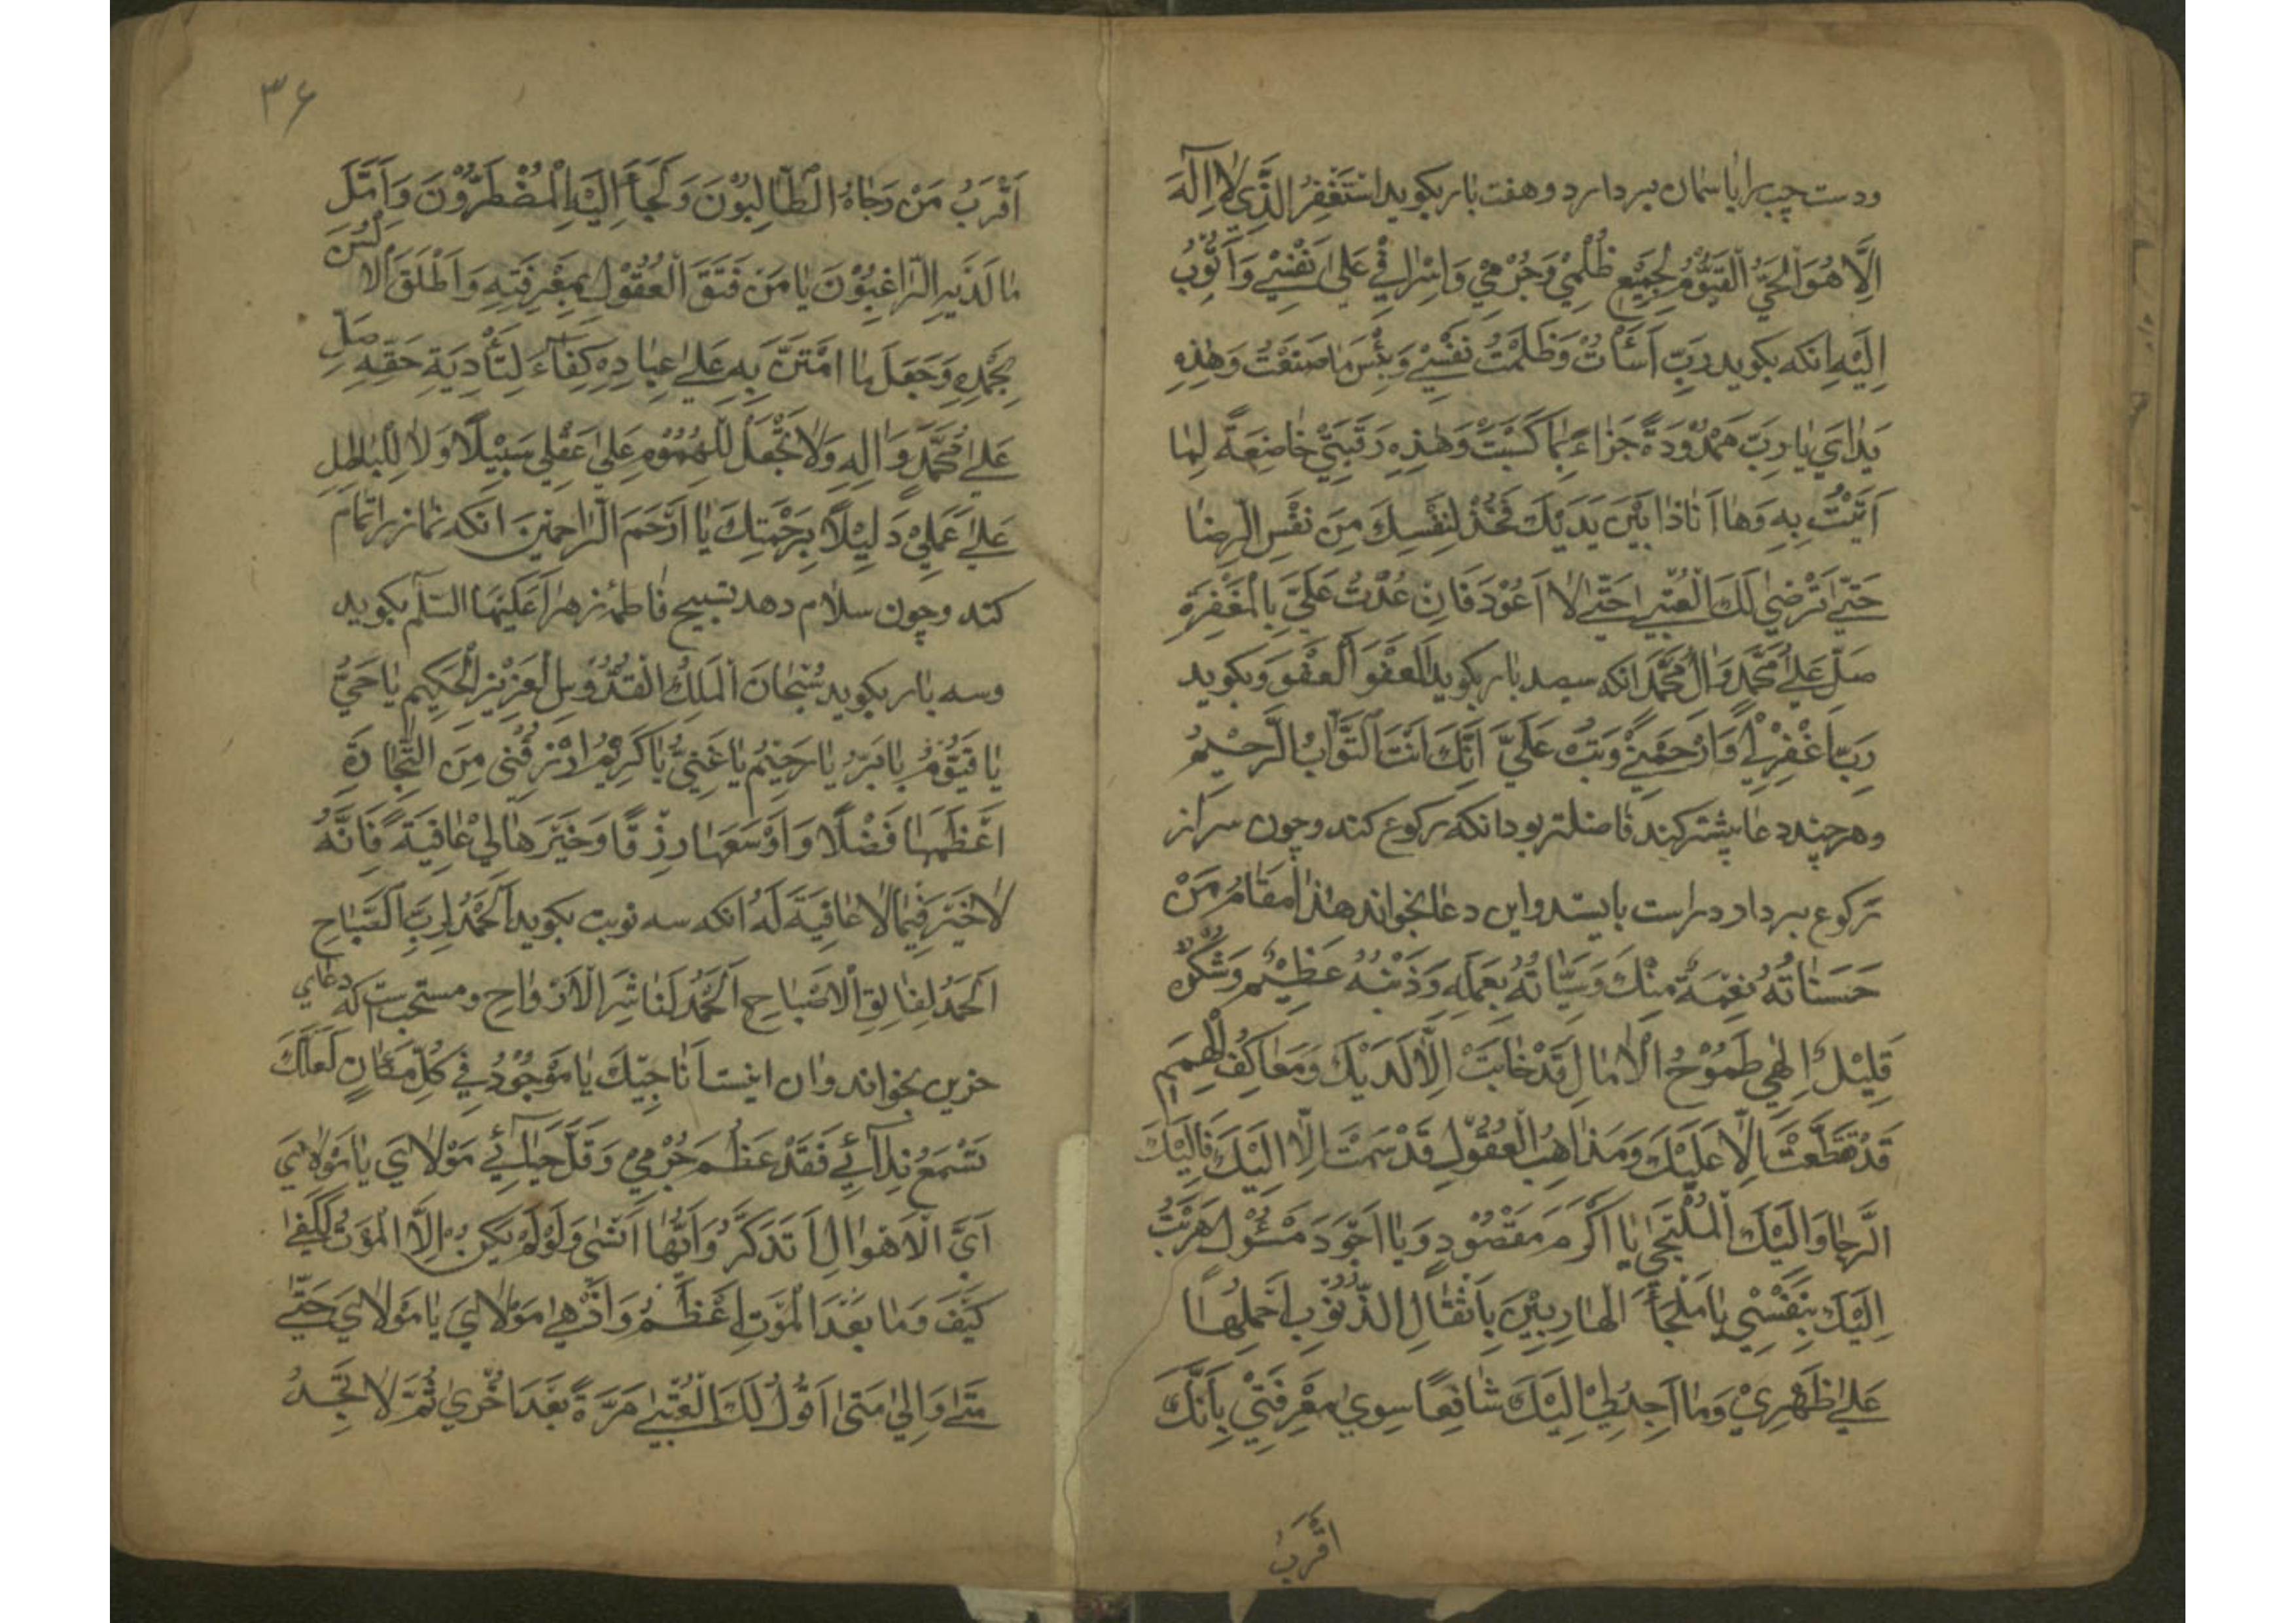 ودست چپ را باسمان بردارد و هفت بار بکوید اَسْتَغْفِرُ الَّذي لا اِلٰهَ
اِلَّا هُوَ الْحَيُّ الْقَيُّومُ لِجَميعِ ظُلْمِي وَجُرْمِي وَاِسْرافِي عَلىٰ نَفْسِي وَاَتُوبُ
اِلَيْهِ انکه بکوید رَبِّ اَسَأْتُ وَظَلَمْتُ نَفْسِي وَبِئْسَ مٰا صَنَعْتُ وَهٰذِهِ
يَدٰايَ يٰا رَبِّ مَمْدُودَةً جَزٰاءً بِمٰا كَسَبَتْ وَهٰذِهِ رَقَبَتي خٰاضِعَةً لِمٰا
اَتَيْتُ بِهِ وَهٰا اَنَا ذٰا بَيْنَ يَدَيْكَ فَخُذْ لِنَفْسِكَ مِنْ نَفْسِي الرِّضٰا
حَتّىٰ تَرْضىٰ لَكَ الْعُتْبىٰ حَتّىٰ لٰا اَعُوْدَ فَاِنْ عُدْتُ عَلَيَّ بِالْمَغْفِرَةِ
صَلِّ عَلىٰ مُحَمَّدٍ وَاٰلِ مُحَمَّدٍ انکه سیصد بار بکوید اَلْعَفْوَ اَلْعَفْوَ وبکوید
رَبِّ اغْفِرْ لِي وَارْحَمْنِي وَتُبْ عَلَيَّ اِنَّكَ اَنْتَ التَّوّٰابُ الرَّحيمُ
وهرچند دعا بیشتر کند فاضلتر بود انکه رکوع کند وچون سر از
رکوع بردارد راست بایستد واین دعا بخواند هٰذٰا مَقٰامُ مَنْ
حَسَنٰاتُهُ نِعْمَةٌ مِنْكَ وَسَيِّئٰاتُهُ بِعَمَلِهِ وَذَنْبُهُ عَظِيمٌ وَشُكْرُهُ
قَلِيلٌ اِلٰهِي طَمُوْحُ الْاٰمٰالِ قَدْ خٰابَتْ اِلّٰا لَدَيْكَ وَمَعٰاكِفُ الْهِمَمِ
قَدْ تَقَطَّعَتْ اِلّٰا عَلَيْكَ وَمَذٰاهِبُ الْعُقُولِ قَدْ سَمَتْ اِلّٰا اِلَيْكَ فَاِلَيْكَ
الرَّجٰا وَاِلَيْكَ الْمُلْتَجىٰ يٰا اَكْرَمَ مَقْصُودٍ وَيٰا اَجْوَدَ مَسْئُولٍ هَرَبْتُ
اِلَيْكَ بِنَفْسِي يٰا مَلْجَأَ الْهٰارِبِينَ بِاَثْقٰالِ الذُّنُوبِ اَحْمِلُهٰا
عَلىٰ ظَهْرِي وَمٰا اَجِدُ لِي اِلَيْكَ شٰافِعًا سِوىٰ مَعْرِفَتي بِاَنَّكَ
اَقْرَبُ
۳۶
اَقْرَبُ مَنْ رَجٰاهُ الطّٰالِبُونَ وَلَجَأَ اِلَيْهِ الْمُضْطَرُّونَ وَاَمَّلَ
مٰا لَدَيْهِ الرّٰاغِبُوْنَ يٰا مَنْ فَتَقَ الْعُقُولَ بِمَعْرِفَتِهِ وَاَطْلَقَ الْاَلْسُنَ
بِحَمْدِهِ وَجَعَلَ مٰا امْتَنَّ بِهِ عَلىٰ عِبٰادِهِ كِفٰاءً لِتَأْدِيَةِ حَقِّهِ صَلِّ
عَلىٰ مُحَمَّدٍ وَاٰلِهِ وَلٰا تَجْعَلْ لِلْهُمُومِ عَلىٰ عَقْلِي سَبِيْلًا وَلٰا لِلْبٰاطِلِ
عَلىٰ عَمَلِي دَلِيْلًا بِرَحْمَتِكَ يٰا اَرْحَمَ الرّٰاحِمِينَ انکه نماز را تمام
کند وچون سلام دهد تسبیح فاطمهٔ زهرا عَلَیْهَا السّلٰم بکوید
وسه بار بکوید سُبْحٰانَ الْمَلِكِ الْقُدُّوسِ الْعَزِيزِ الْحَكِيمِ يٰا حَيُّ
يٰا قَيُّوْمُ يٰا بَرُّ يٰا رَحِيْمُ يٰا غَنِيُّ يٰا كَرِيْمُ ارْزُقْنِي مِنَ التِّجٰارَةِ
اَعْظَمَهٰا فَضْلًا وَاَوْسَعَهٰا رِزْقًا وَخَيْرَهٰا لِي عٰافِيَةً فَاِنَّهُ
لٰا خَيْرَ فِيمٰا لٰا عٰافِيَةَ لَهُ انکه سه نوبت بکوید اَلْحَمْدُ لِرَبِّ الصَّبٰاحِ
اَلْحَمْدُ لِفٰالِقِ الْاَصْبٰاحِ اَلْحَمْدُ لِنٰاشِرِ الْاَرْوٰاحِ ومستحبست که دعای
حزین بخواند وان اینست اُنٰاجِيْكَ يٰا مَوْجُوْدُ فِي كُلِّ مَكٰانٍ لَعَلَّكَ
تَسْمَعُ نِدٰائِي فَقَدْ عَظُمَ جُرْمِي وَقَلَّ حَيٰائِي مَوْلٰايَ يٰا مَوْلٰايَ
اَيَّ الْاَهْوٰالِ اَتَذَكَّرُ وَاَيَّهٰا اَنْسىٰ وَلَوْ لَمْ يَكُنْ اِلَّا الْمَوْتُ لَكَفىٰ
كَيْفَ وَمٰا بَعْدَ الْمَوْتِ اَعْظَمُ وَاَدْهىٰ مَوْلٰايَ يٰا مَوْلٰايَ حَتّىٰ
مَتىٰ وَاِلىٰ مَتىٰ اَقُولُ لَكَ الْعُتْبىٰ مَرَّةً بَعْدَ اُخْرىٰ ثُمَّ لٰا تَجِدُ